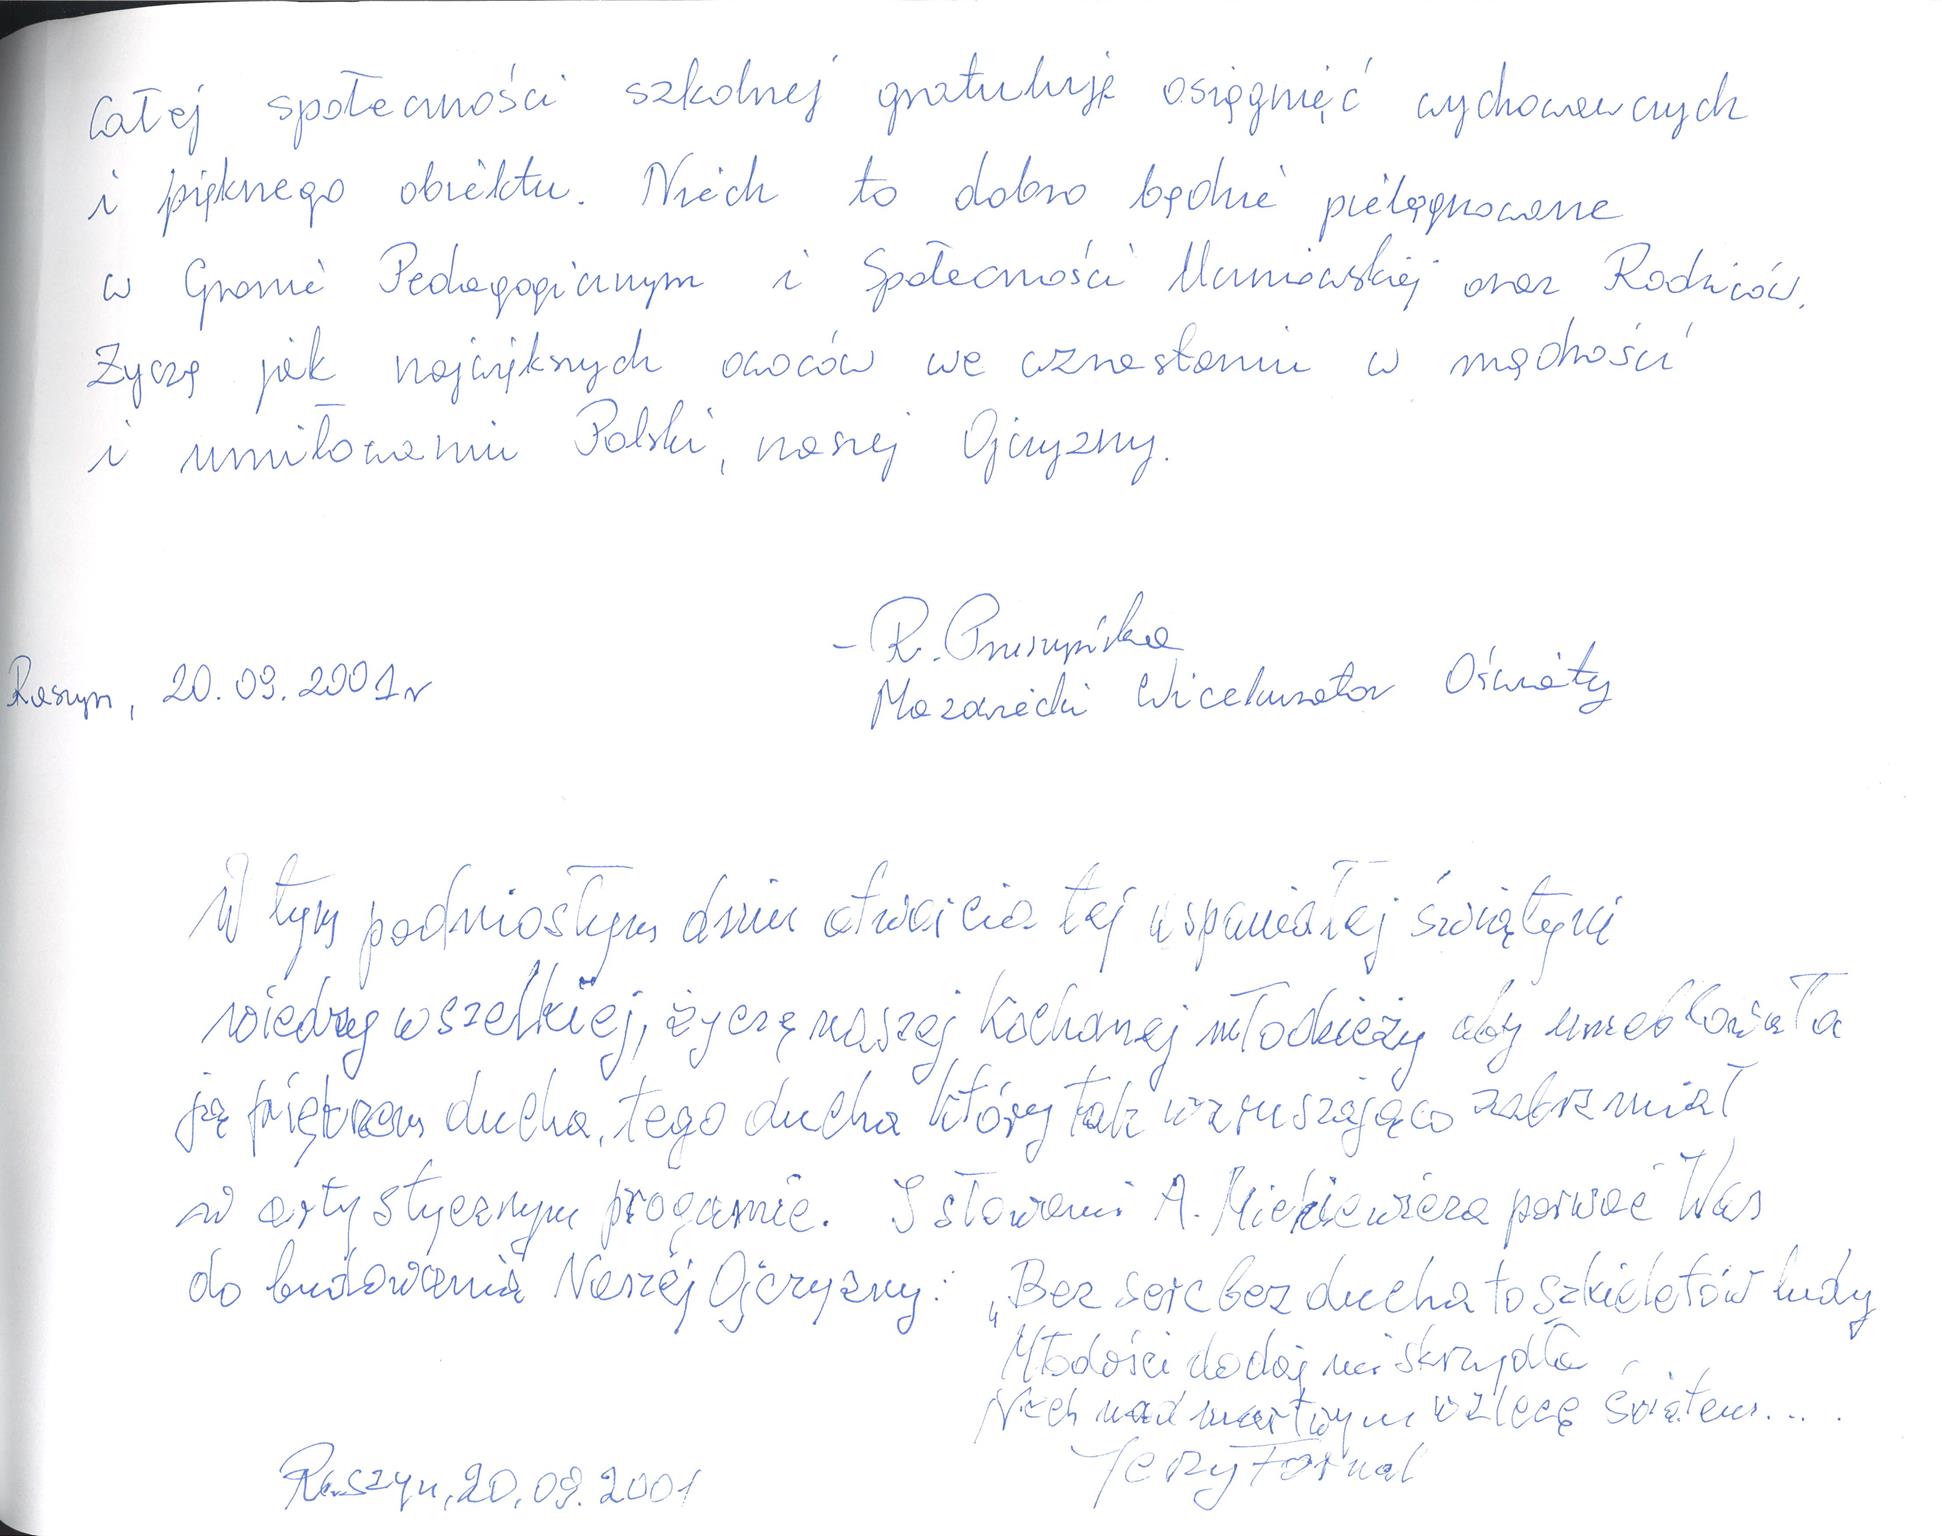 Całej społeczności szkolnej gratuluję osiągnięć wychowawczych
i pięknego obiektu. Niech to dobro będzie pielęgnowane
w Gronie Pedagogicznym i Społeczności Uczniowskiej oraz Rodziców.
Życzę jak największych owoców we wzrastaniu w mądrości
i umiłowaniu Polski, naszej Ojczyzny.
- R.
Raszyn, 20.09.2001r
Mazowiecki Wicekurator Oświaty
W tym podniosłym dniu otwarcia tej wspaniałej świątyni
wiedzy wszelkiej, życzę naszej kochanej młodzieży aby umeblowała
ją pięknem ducha, tego ducha który tak wzruszająco zabrzmiał
w artystycznym progamie. I słowami A. Mickiewicza porwać Was
do budowania Naszej Ojczyzny: „Bez serc bez ducha to szkieletów ludy
Młodości dodaj mi skrzydła
Niech nad martwym wzlecę światem....
Jerzy Fornal
Raszyn, 20.09.2001